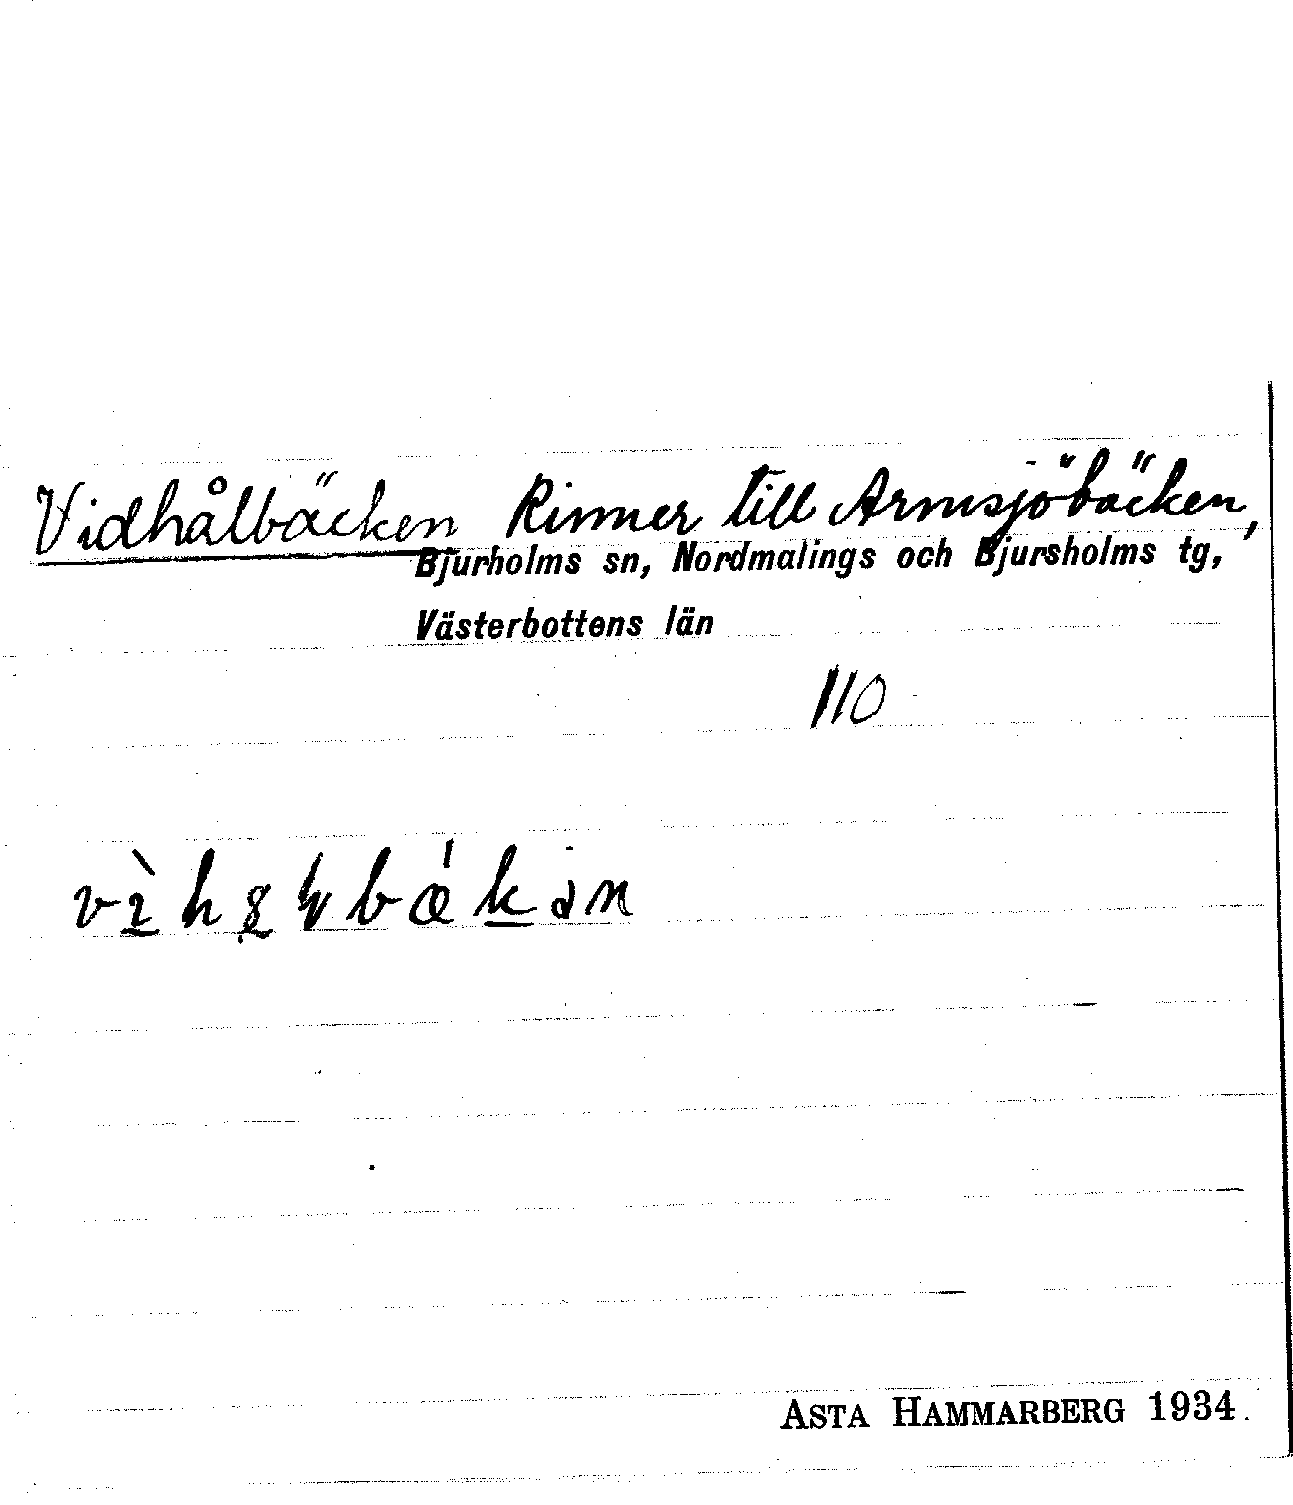 Vidhålbäcken Rinner till Armsjöbäcken,
Bjurholms sn, Nordmalings och Bjursholms tg,
Västerbottens län
110
ASTA HAMMARBERG 1934.